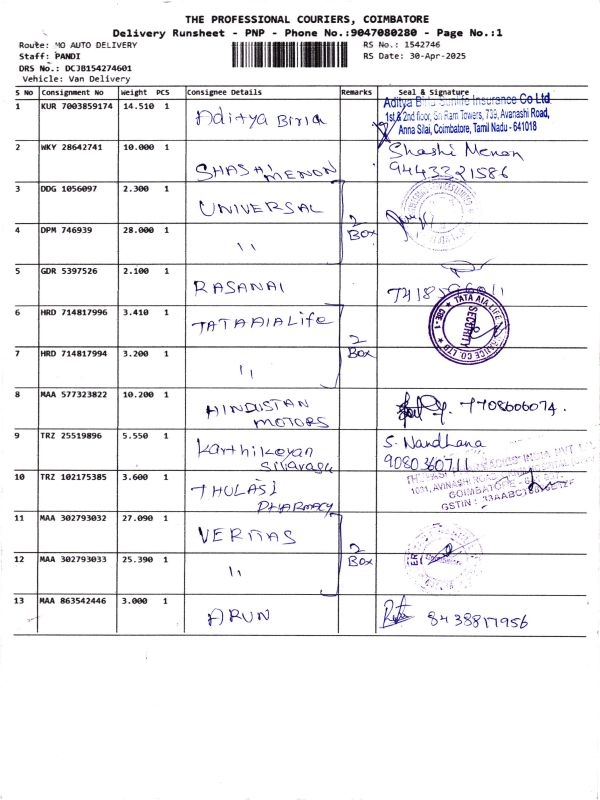 THE PROFESSIONAL COURIERS, COIMBATORE
Delivery Runsheet - PNP - Phone No.:9047080280 - Page No.:1
Route: MO AUTO DELIVERY
RS No.: 1542746
Staff: PANDI
RS Date: 30-Apr-2025
DRS No.: DCJB154274601
Vehicle: Van Delivery
S No Consignment No Weight PCS Consignee Details Remarks Seal & Signature
1 KUR 7003859174 14.510 1 Aditya Birla
Aditya Birla Sunlife Insurance Co Ltd
1st & 2nd floor, Sri Ram Towers, 739, Avanashi Road,
Anna Silai, Coimbatore, Tamil Nadu - 641018
2 WKY 28642741 10.000 1 SHASHI MENON Shashi Menon
9443321586
3 DDG 1056097 2.300 1 UNIVERSAL
2 BOX
4 DPM 746939 28.000 1 "
5 GDR 5397526 2.100 1 RASANAI
6 HRD 714817996 3.410 1 TATA AIA Life
TATA AIA LIFE
SECURITY
2 BOX
7 HRD 714817994 3.200 1 "
8 MAA 577323822 10.200 1 HINDISTAN MOTORS 7708606074.
9 TRZ 25519896 5.550 1 Karthikeyan
S. Nandhana
9080360711
10 TRZ 102175385 3.600 1 THULASI PHARMACY
COIMBATORE
GSTIN :
11 MAA 302793032 27.090 1 VERMAS
2 BOX
12 MAA 302793033 25.390 1 "
13 MAA 863542446 3.000 1 ARUN 8438817956